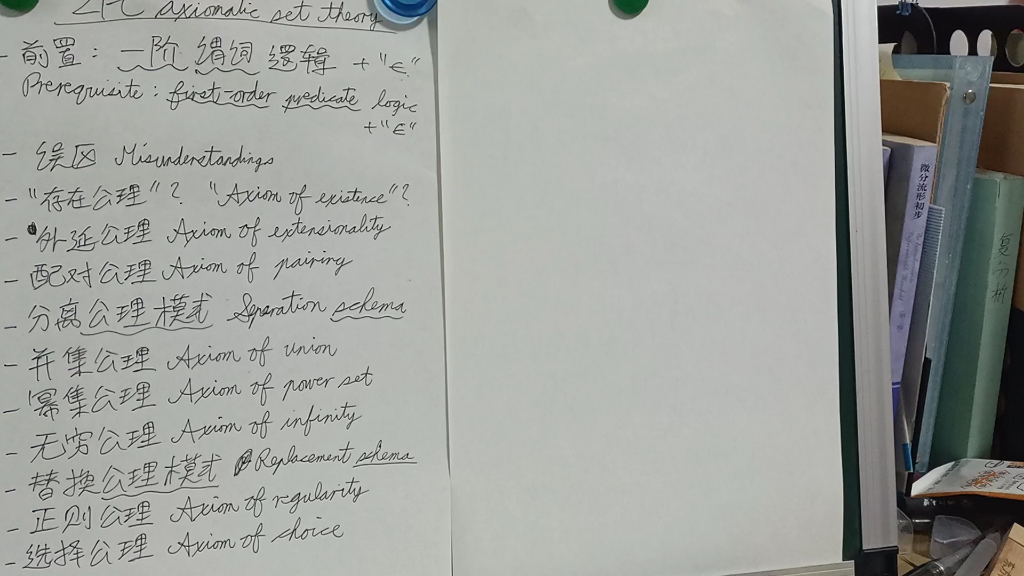 ZFC axiomatic set theory
- 前置：一阶谓词逻辑 + "∈"
Prerequisite: first-order predicate logic
+ "∈"
- 误区 Misunderstandings
- "存在公理"? "Axiom of existence"?
- 外延公理 Axiom of extensionality
- 配对公理 Axiom of pairing
- 分离公理模式 Separation schema
- 并集公理 Axiom of union
- 幂集公理 Axiom of power set
- 无穷公理 Axiom of infinity
- 替换公理模式 Replacement schema
- 正则公理 Axiom of regularity
- 选择公理 Axiom of choice
微分流形初步
复分析